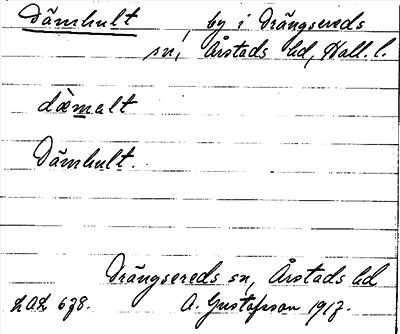 Dämhult, by i Drängsereds
sn, Årstads hd, Hall. l.
dä̀malt
Dämhult.
Drängsereds sn, Årstads hd
LAL 678. A. Gustafsson 1917.